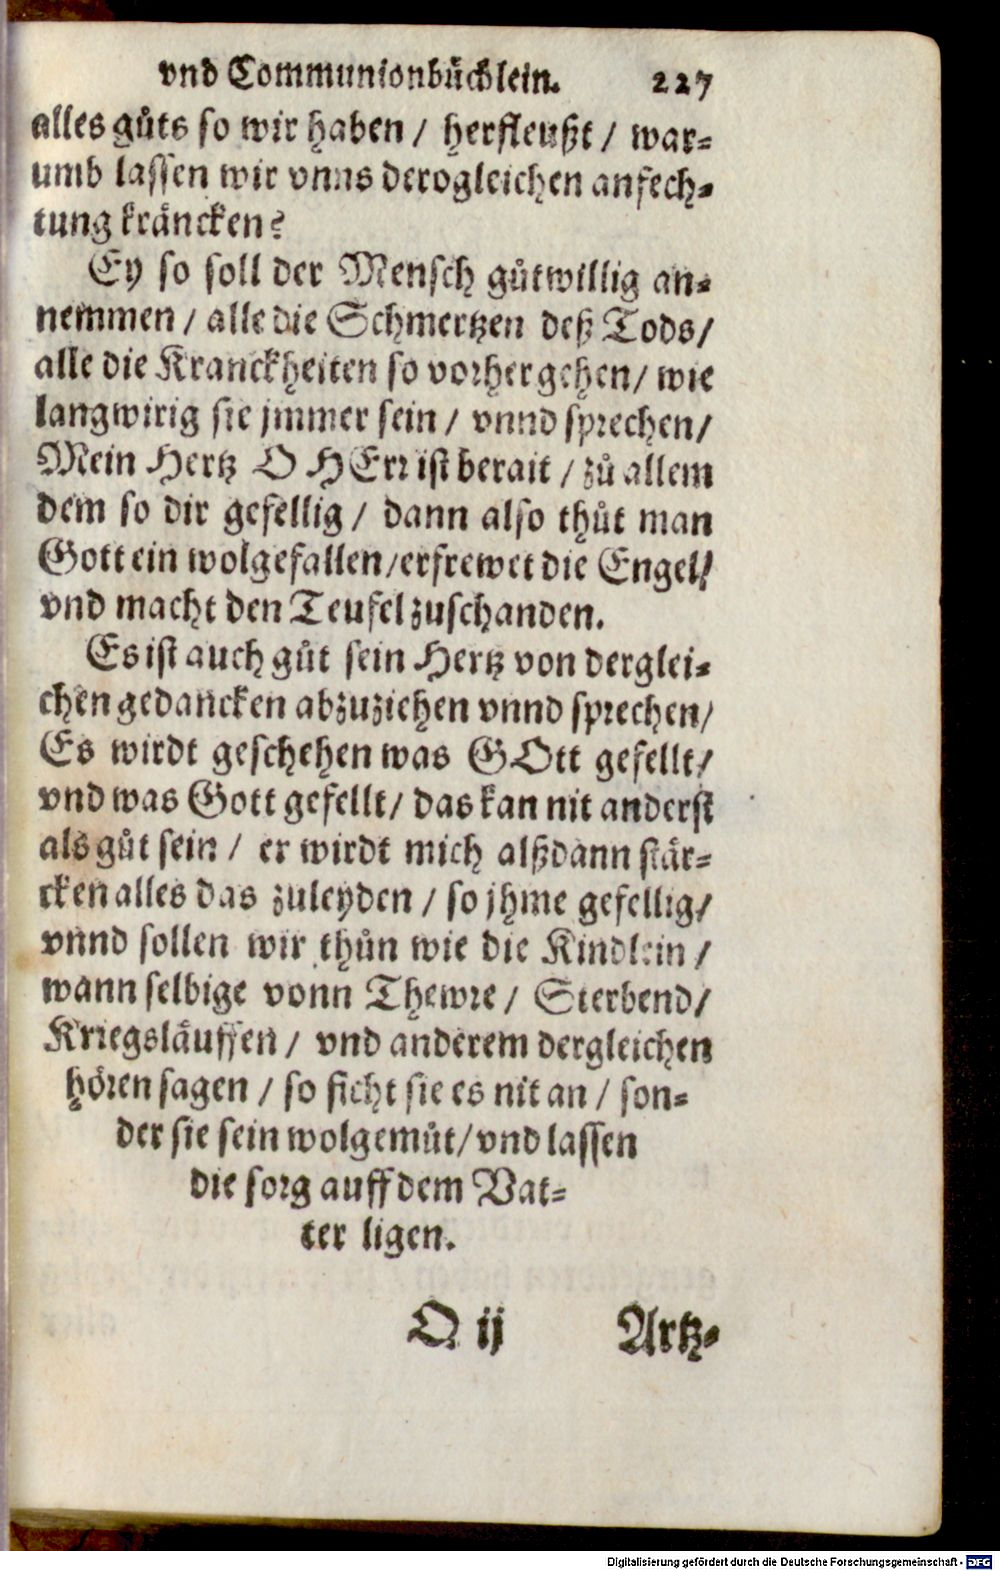 vnd Communionbüchlein. 227
alles gůts so wir haben / herfleußt / war=
umb lassen wir vnns derogleichen anfech=
tung kräncken?
Ey so soll der Mensch gůtwillig an=
nemmen / alle die Schmertzen deß Tods /
alle die Kranckheiten so vorher gehen / wie
langwirig sie jmmer sein / vnnd sprechen /
Mein Hertz O HErr ist berait / zů allem
dem so dir gefellig / dann also thůt man
Gott ein wolgefallen / erfrewet die Engel /
vnd macht den Teufel zuschanden.
Es ist auch gůt sein Hertz von derglei=
chen gedancken abzuziehen vnnd sprechen /
Es wirdt geschehen was GOtt gefellt /
vnd was Gott gefellt / das kan nit anderst
als gůt sein / er wirdt mich alßdann stär=
cken alles das zuleyden / so jhme gefellig /
vnnd sollen wir thůn wie die Kindlein /
wann selbige vonn Thewre / Sterbend /
Kriegsläuffen / vnd anderem dergleichen
hören sagen / so ficht sie es nit an / son=
der sie sein wolgemůt / vnd lassen
die sorg auff dem Vat=
ter ligen.
O ij Artz=
Digitalisierung gefördert durch die Deutsche Forschungsgemeinschaft - DFG